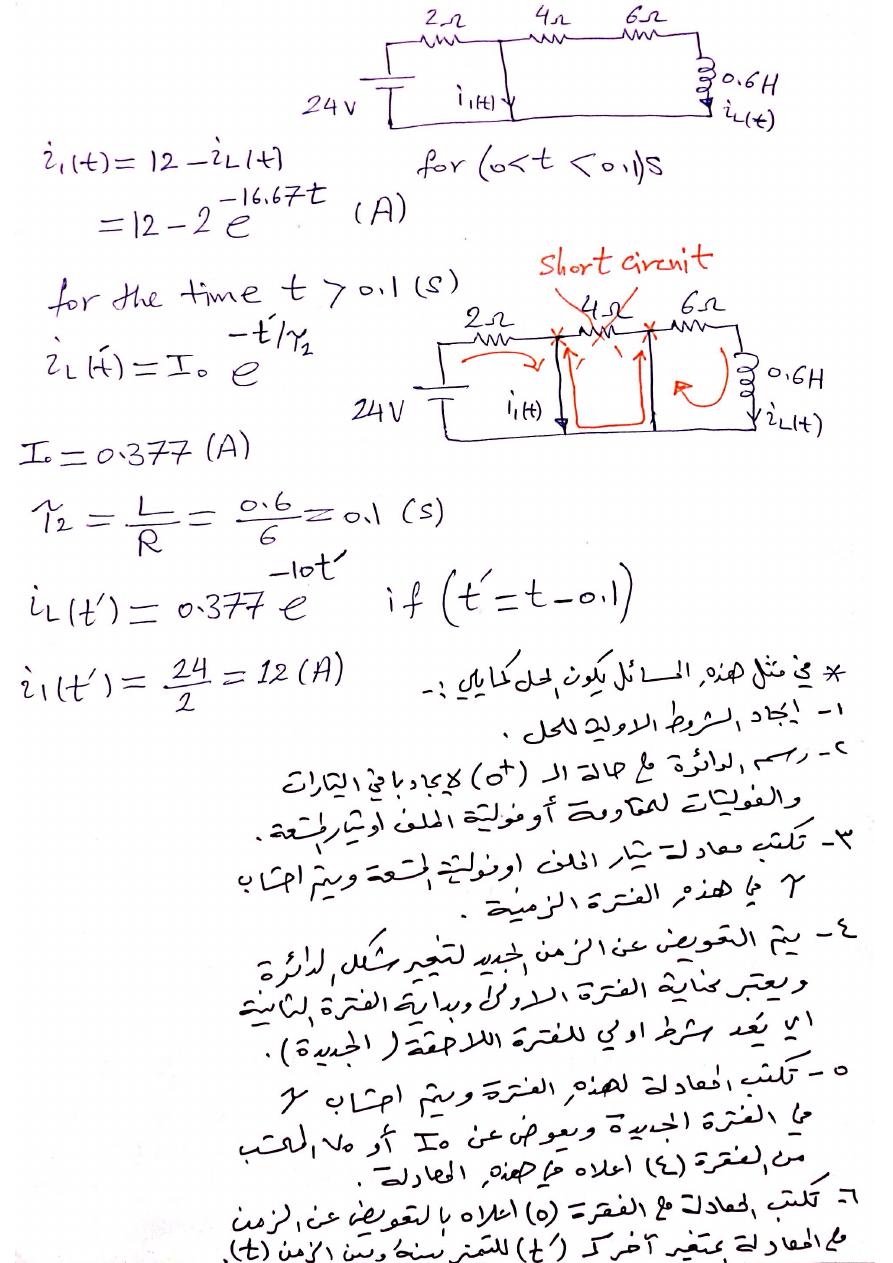 2Ω 4Ω 6Ω
24V i₁(t) 0.6H
iL(t)
i₁(t) = 12 − iL(t) for (0<t<0.1)s
= 12 − 2 e^−16.67t (A)
short circuit
for the time t > 0.1 (s)
2Ω 4Ω 6Ω
iL(t′) = I₀ e^−t′/τ₂
24V i₁(t) 0.6H
iL(t)
I₀ = 0.377 (A)
τ₂ = L/R = 0.6/6 = 0.1 (s)
iL(t′) = 0.377 e^−10t′ if (t′ = t−0.1)
i₁(t′) = 24/2 = 12 (A)
* في مثل هذه المسائل يكون الحل كمايلي :-
١- ايجاد الشروط الاولية للحل .
٢- رسم الدائرة مع حالة الـ (0⁺) لايجاد باقي التيارات
والفولتيات للمقاومة أو فولتية الملف او تيار المتسعة .
٣- تكتب معادلة تيار الملف او فولتية المتسعة ويتم احتساب
τ في هذه الفترة الزمنية .
٤- يتم التعويض عن الزمن الجديد لتغير شكل الدائرة
ويعتبر نهاية الفترة الاولى وبداية الفترة الثانية
اي يُعد شرط اولي للفترة اللاحقة (الجديدة) .
٥- تكتب المعادلة لهذه الفترة ويتم احتساب τ
في الفترة الجديدة ويعوض عن I₀ أو V₀ المحتسب
من الفقرة (٤) اعلاه في هذه المعادلة .
٦- تكتب المعادلة مع الفقرة (٥) اعلاه بالتعويض عن الزمن
مع المعادلة بمتغير آخر كـ (t′) للتميز بينه وبين الزمن (t).